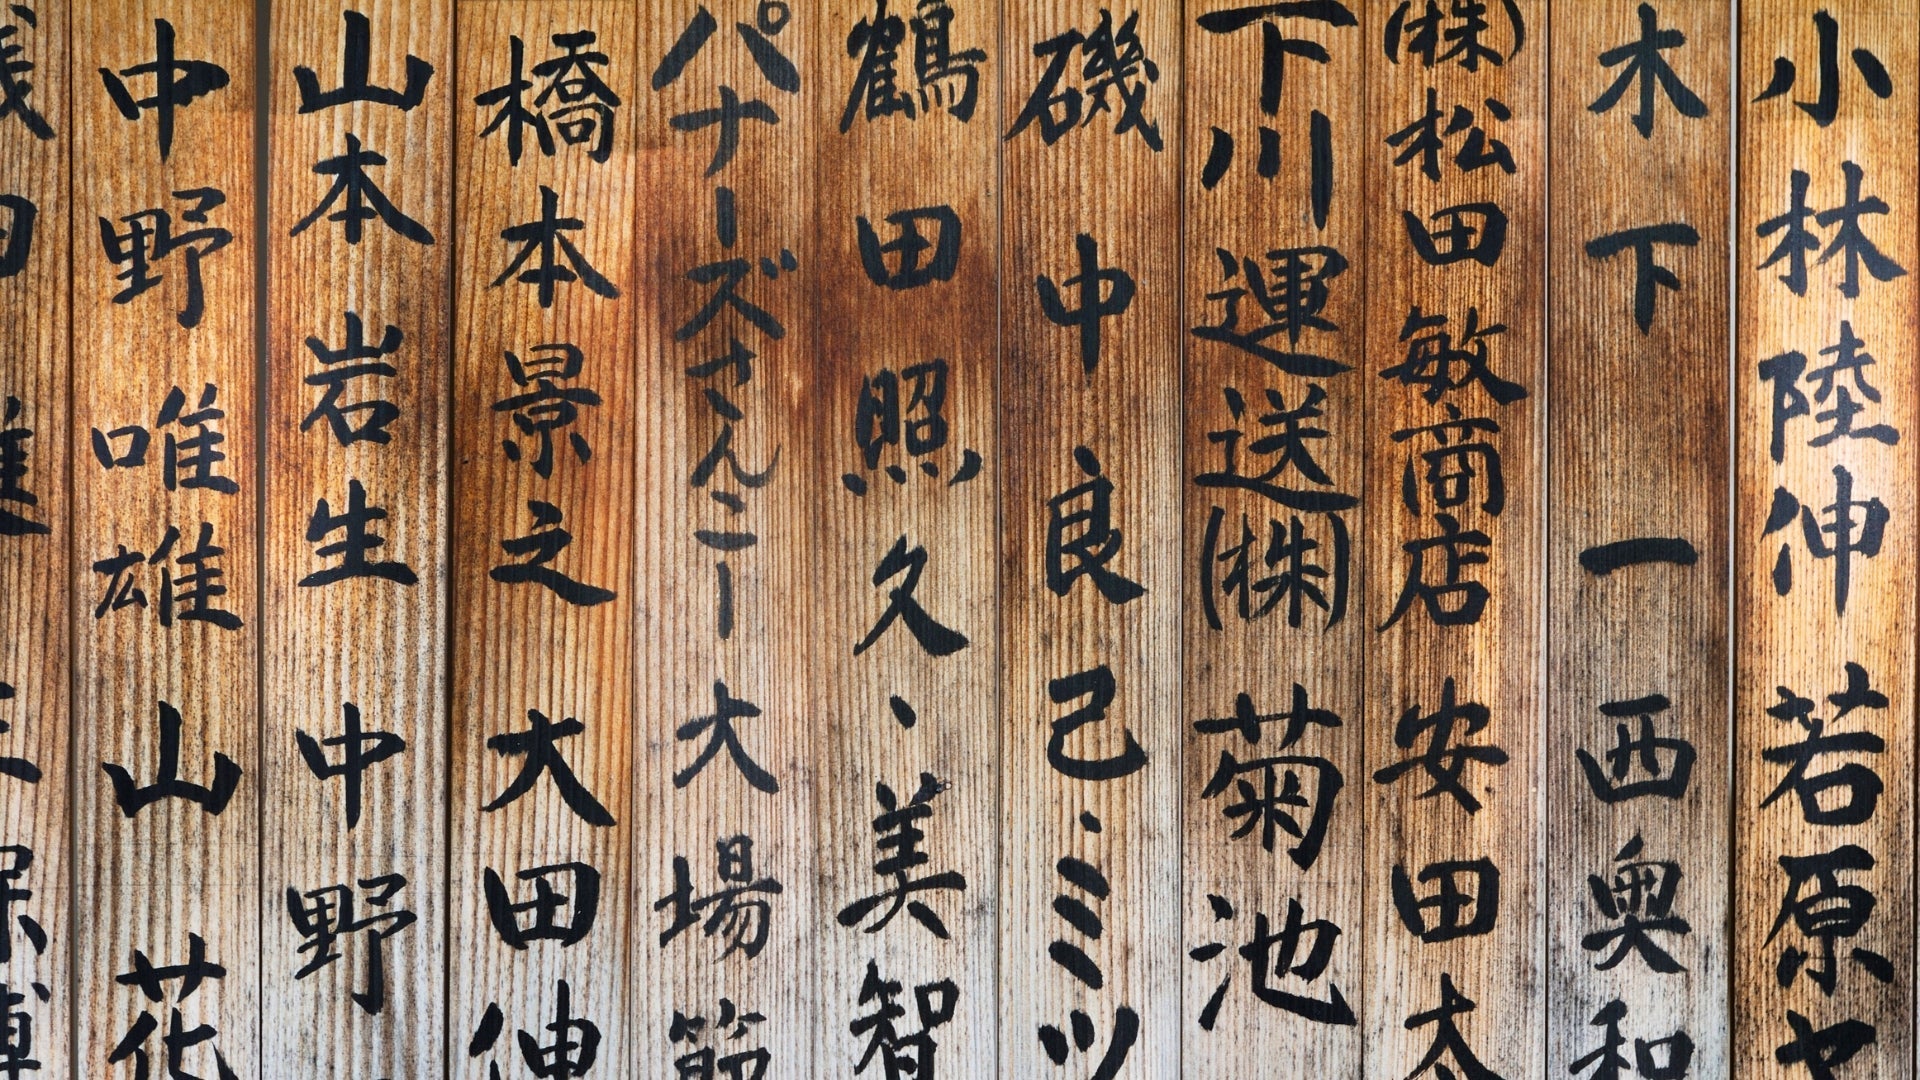 小林陸伸 若原ヤ
木下 一 西奥和
(株)松田敏商店 安田太
下川運送(株) 菊池
磯中良己、ミツ
鶴田照久、美智
パナーズさんこー 大場節
橋本景之 大田伸
山本岩生 中野
中野唯雄 山花